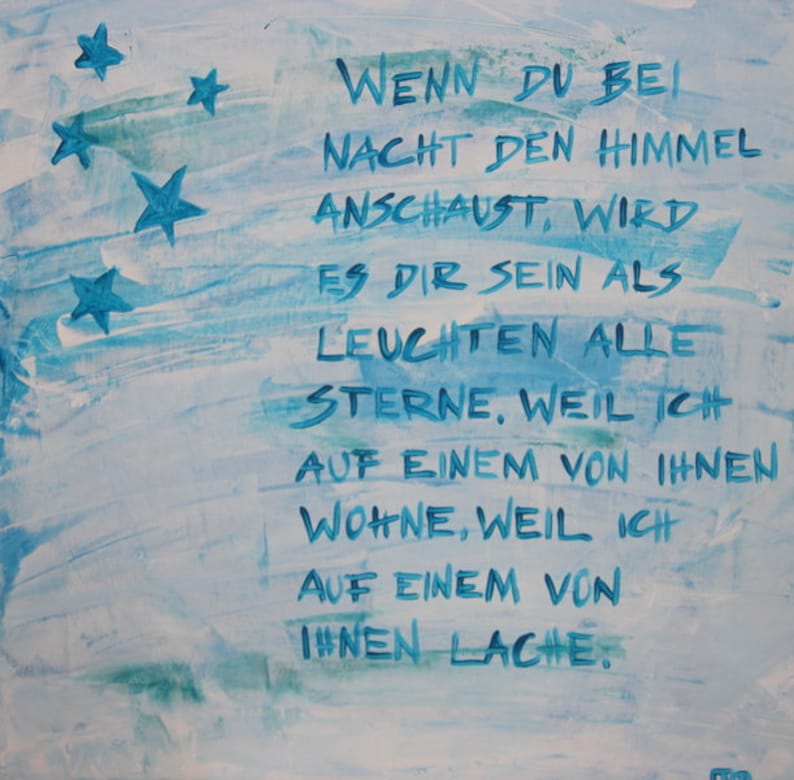 WENN DU BEI
NACHT DEN HIMMEL
ANSCHAUST, WIRD
ES DIR SEIN ALS
LEUCHTEN ALLE
STERNE. WEIL ICH
AUF EINEM VON IHNEN
WOHNE, WEIL ICH
AUF EINEM VON
IHNEN LACHE.